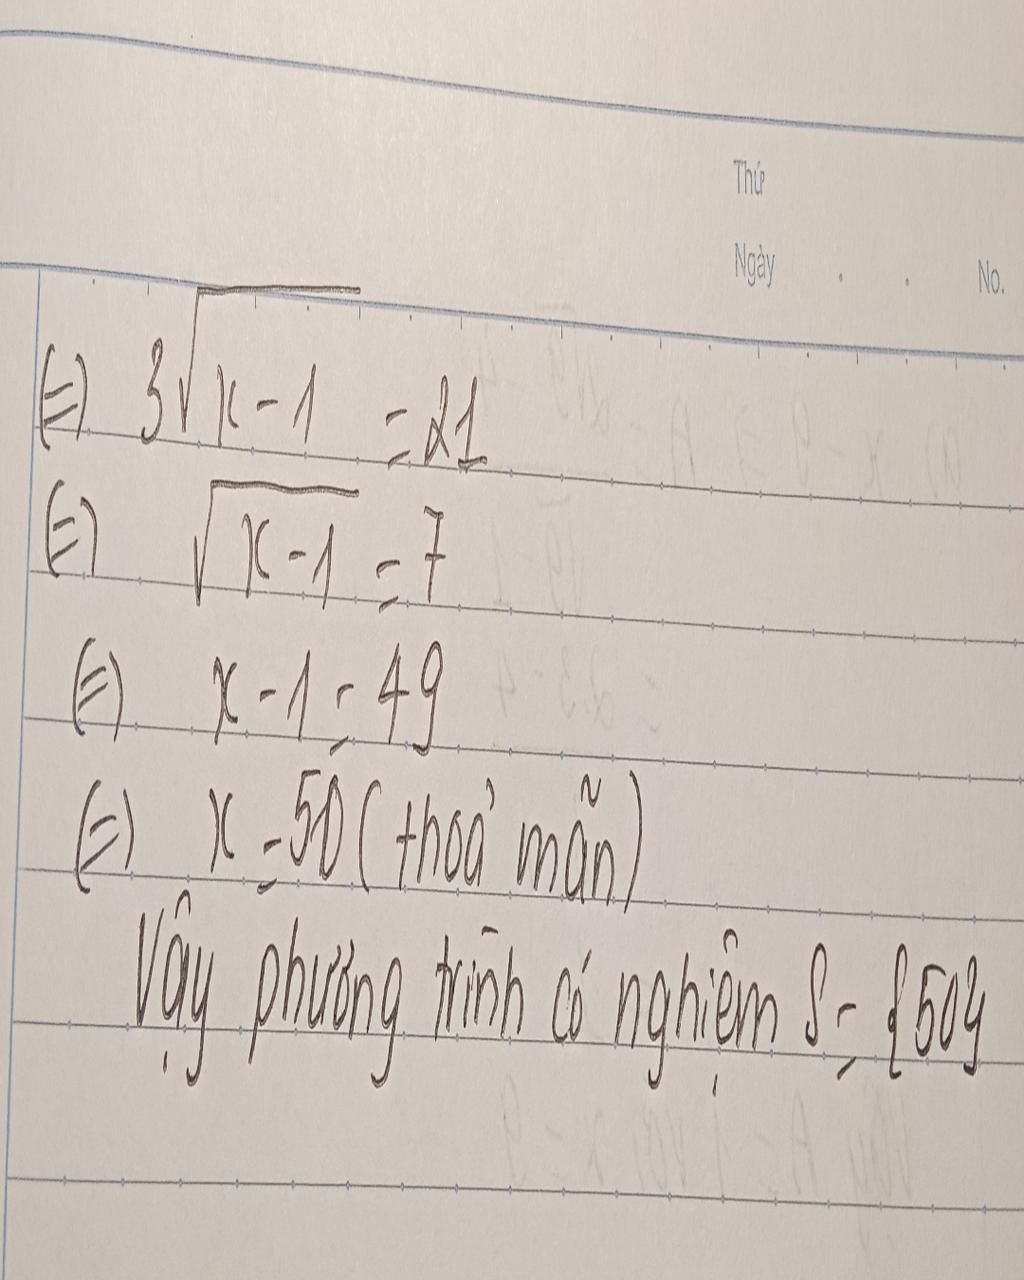 Thứ
Ngày . . No.
(=) 3√x-1 = 21
(=) √x-1 = 7
(=) x-1 = 49
(=) x = 50 (thoả mãn)
Vậy phương trình có nghiệm S = {50}